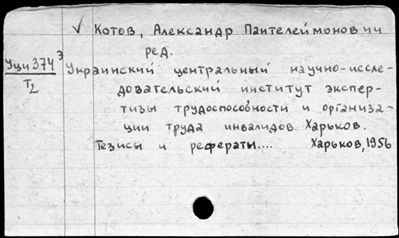 √ Котов, Александр Пантелеймонович
ред.
Уци374э
Т2
Украинский центральный научно-иссле-
довательский институт экспер-
тизы трудоспособности и организа-
ции труда инвалидов. Харьков.
Тезисы и рефераты.... Харьков, 1956